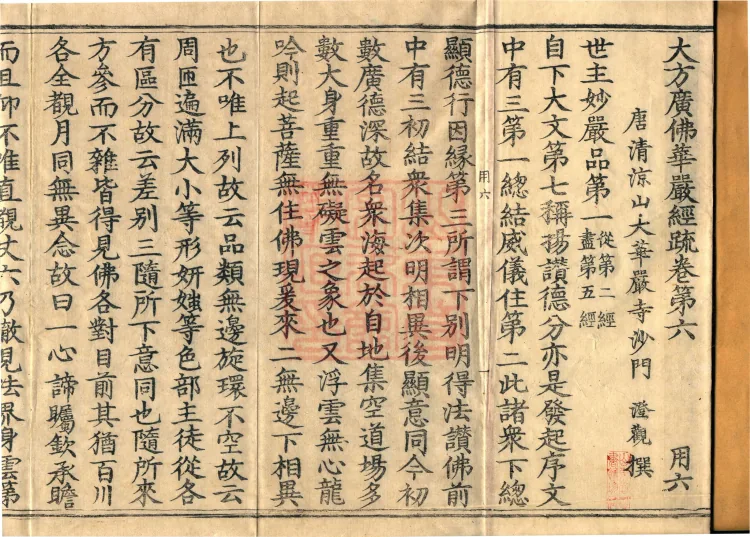 大方廣佛華嚴經疏卷第六 用六
唐清涼山大華嚴寺沙門 澄觀 撰
世主妙嚴品第一 從第二經盡第五經
自下大文第七稱揚讚德分亦是發起序文
中有三第一總結威儀住第二此諸衆下總
用六 一
顯德行因緣第三所謂下別明得法讚佛前
中有三初結衆集次明相異後顯意同今初
數廣德深故名衆海起於自地集空道場多
數大身重重無礙雲之象也又浮雲無心龍
吟則起菩薩無住佛現爰來二無邊下相異
也不唯上列故云品類無邊旋環不空故云
周匝遍滿大小等形妍媸等色部主徒從各
有區分故云差別三隨所下意同也隨所來
方參而不雜皆得見佛各對目前其猶百川
各全觀月同無異念故曰一心諦矚欽承瞻
而且仰不唯直觀丈六乃徹見法界身雲第